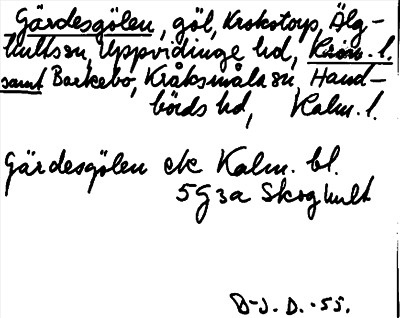 Gärdesgölen, göl, Krokstorp, Älg-
hults sn, Uppvidinge hd, Kron. l.
samt Barkebo, Kråksmåla sn, Hand-
börds hd, Kalm. l.
Gärdesgölen ek Kalm. bl.
5G3a Skoghult
D-J. D. -55.